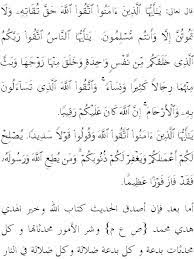 قال تعالى: يَـٰٓأَيُّهَا ٱلَّذِينَ ءَامَنُوا۟ ٱتَّقُوا۟ ٱللَّهَ حَقَّ تُقَاتِهِۦ وَلَا
تَمُوتُنَّ إِلَّا وَأَنتُم مُّسْلِمُونَ. يَـٰٓأَيُّهَا ٱلنَّاسُ ٱتَّقُوا۟ رَبَّكُمُ
ٱلَّذِى خَلَقَكُم مِّن نَّفْسٍ وَٰحِدَةٍ وَخَلَقَ مِنْهَا زَوْجَهَا وَبَثَّ
مِنْهُمَا رِجَالًا كَثِيرًا وَنِسَآءً ۚ وَٱتَّقُوا۟ ٱللَّهَ ٱلَّذِى تَسَآءَلُونَ
بِهِۦ وَٱلْأَرْحَامَ ۚ إِنَّ ٱللَّهَ كَانَ عَلَيْكُمْ رَقِيبًا. يَـٰٓأَيُّهَا
ٱلَّذِينَ ءَامَنُوا۟ ٱتَّقُوا۟ ٱللَّهَ وَقُولُوا۟ قَوْلًا سَدِيدًا يُصْلِحْ
لَكُمْ أَعْمَـٰلَكُمْ وَيَغْفِرْ لَكُمْ ذُنُوبَكُمْ ۗ وَمَن يُطِعِ ٱللَّهَ وَرَسُولَهُۥ
فَقَدْ فَازَ فَوْزًا عَظِيمًا
أما بعد فإن أصدق الحديث كتاب الله وخير الهدي هدي
محمد (ص ع م) وشر الأمور محدثاتها وكل
محدثات بدعة و كل بدعة ضلالة و كل ضلالة في النار